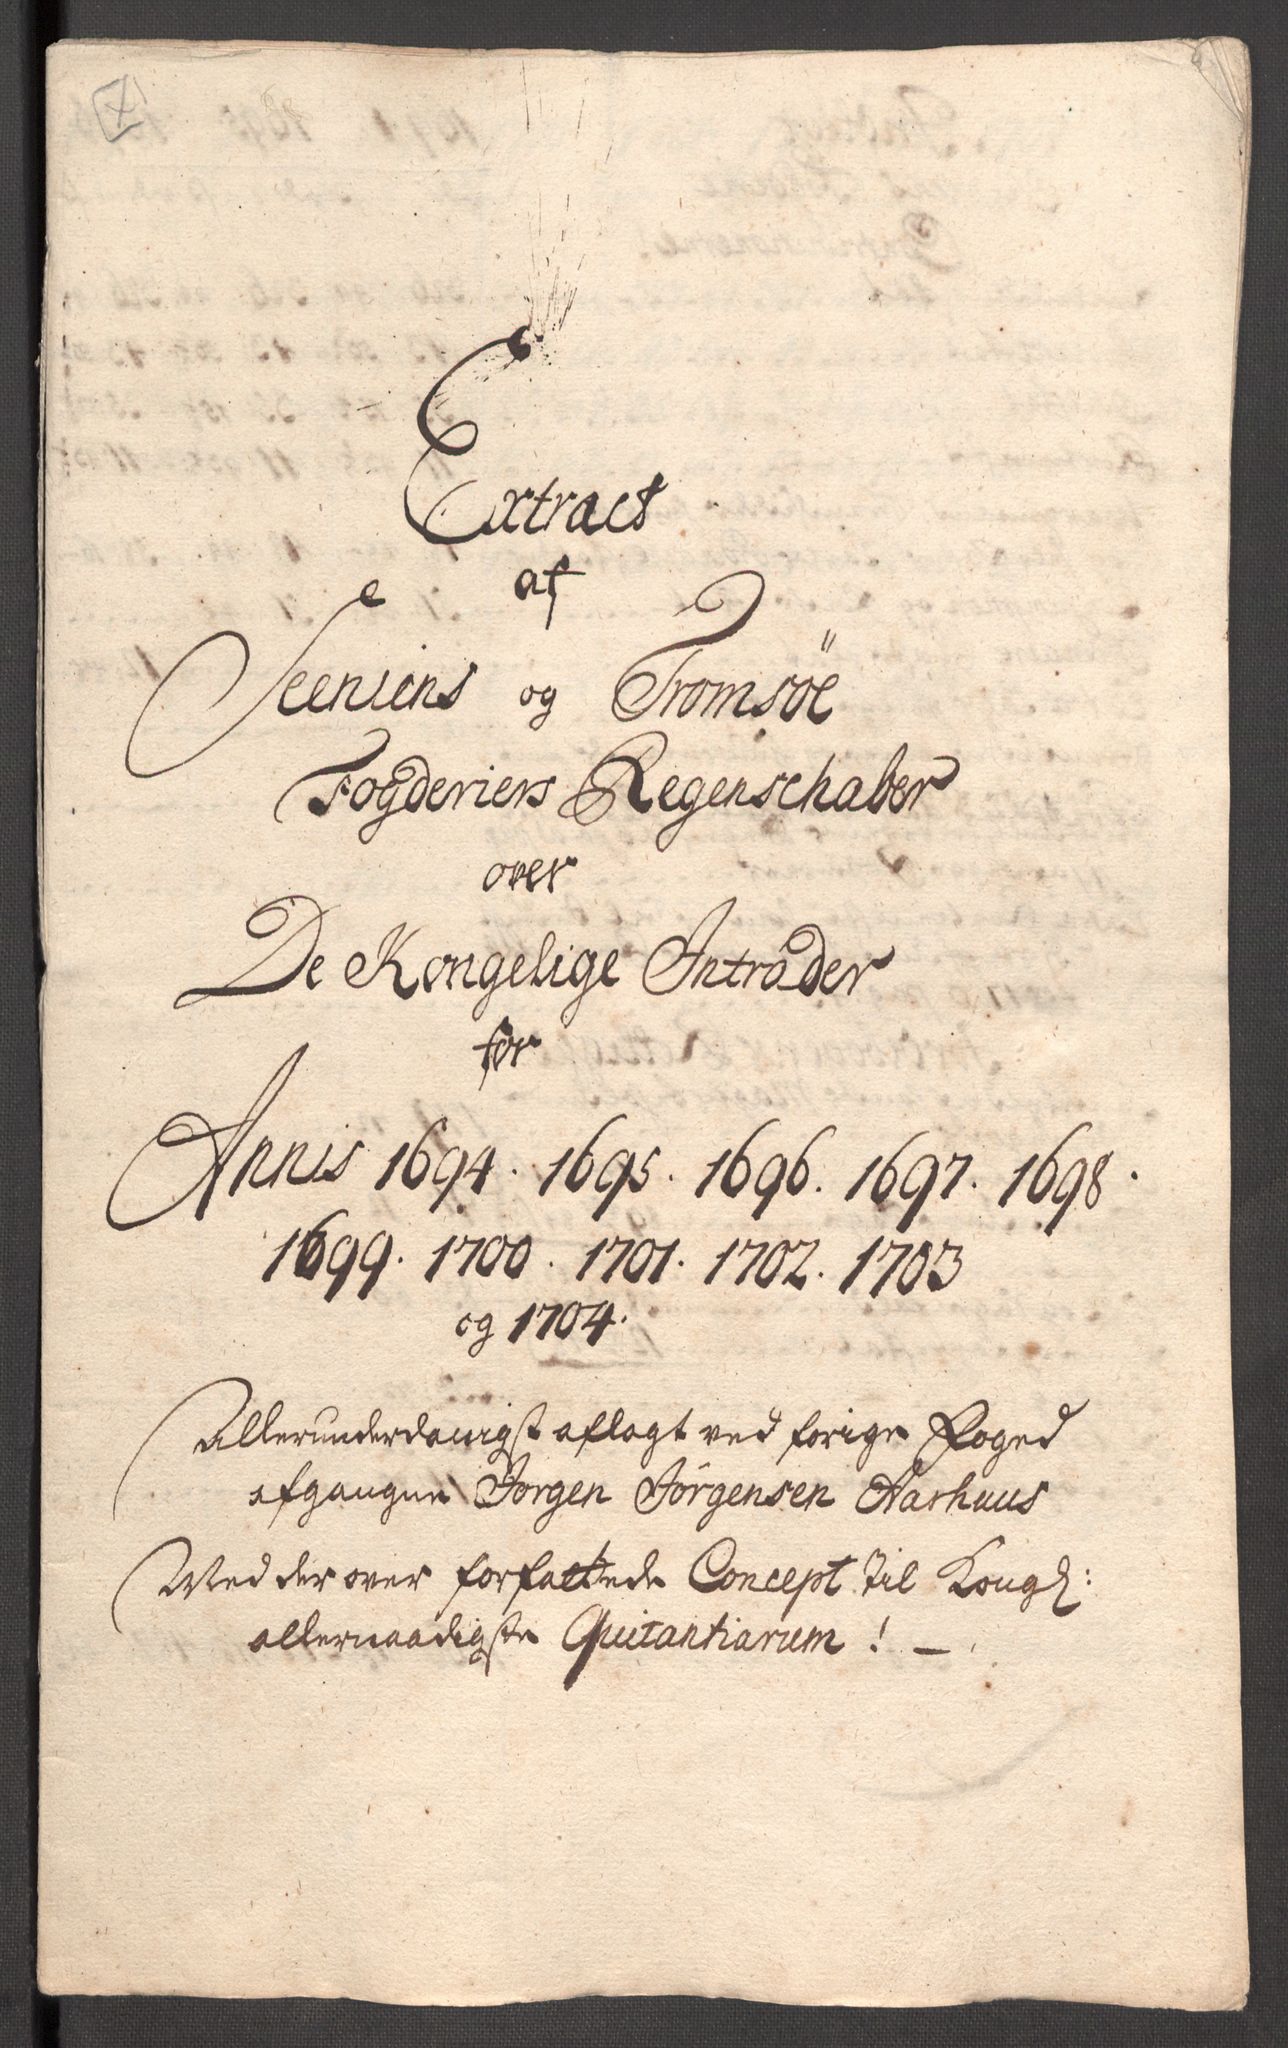 Extract
af
Seeniens og Tromsöe
Fogderiers Regenschaber
over
De Kongelige Intrader
for
Annis 1694. 1695. 1696. 1697. 1698.
1699. 1700. 1701. 1702. 1703
og 1704.
Allerunderdanigst aflagt ved forige Foged
afgangne Jørgen Jørgensen Aarhuus
Med der over forfattede Concept til Kongl:
allernaadigste Quitantiarum ! —